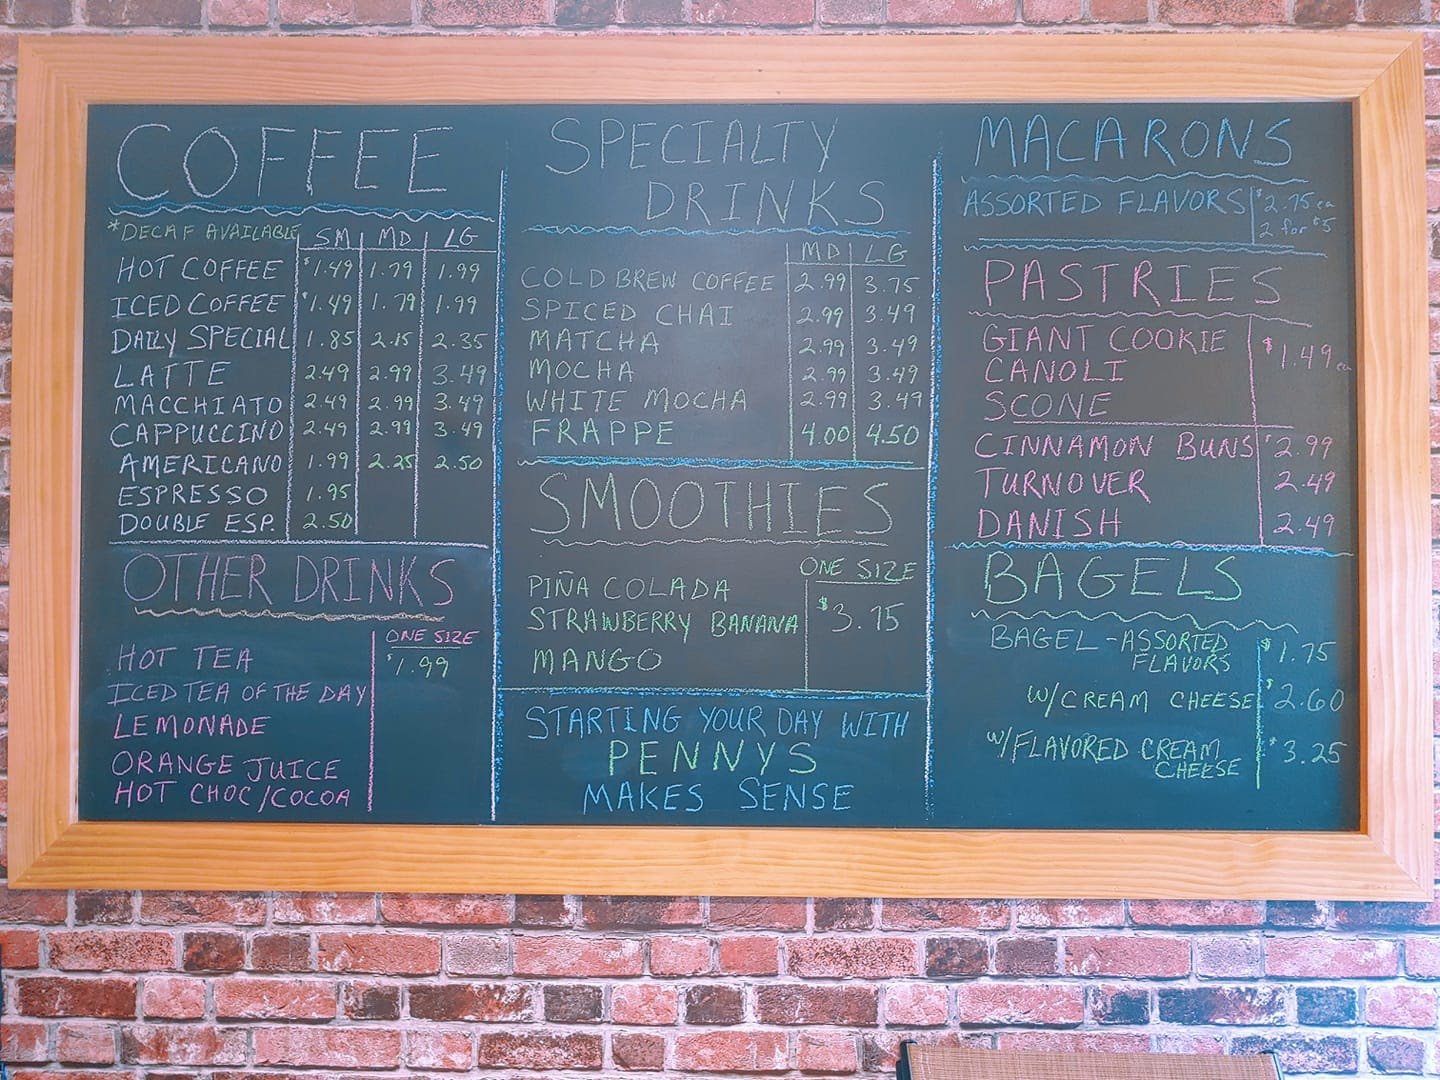 COFFEE
*DECAF AVAILABLE SM MD LG
HOT COFFEE $1.49 1.79 1.99
ICED COFFEE $1.49 1.79 1.99
DAILY SPECIAL 1.85 2.15 2.35
LATTE 2.49 2.99 3.49
MACCHIATO 2.49 2.99 3.49
CAPPUCCINO 2.49 2.99 3.49
AMERICANO 1.99 2.25 2.50
ESPRESSO 1.95
DOUBLE ESP. 2.50
OTHER DRINKS
ONE SIZE
HOT TEA $1.99
ICED TEA OF THE DAY
LEMONADE
ORANGE JUICE
HOT CHOC/COCOA
SPECIALTY
DRINKS
MD LG
COLD BREW COFFEE 2.99 3.75
SPICED CHAI 2.99 3.49
MATCHA 2.99 3.49
MOCHA 2.99 3.49
WHITE MOCHA 2.99 3.49
FRAPPE 4.00 4.50
SMOOTHIES
ONE SIZE
PIÑA COLADA
STRAWBERRY BANANA $3.75
MANGO
STARTING YOUR DAY WITH
PENNYS
MAKES SENSE
MACARONS
ASSORTED FLAVORS $2.75 ea
2 for $5
PASTRIES
GIANT COOKIE $1.49 ea
CANOLI
SCONE
CINNAMON BUNS $2.99
TURNOVER 2.49
DANISH 2.49
BAGELS
BAGEL - ASSORTED $1.75
FLAVORS
W/CREAM CHEESE $2.60
W/FLAVORED CREAM $3.25
CHEESE